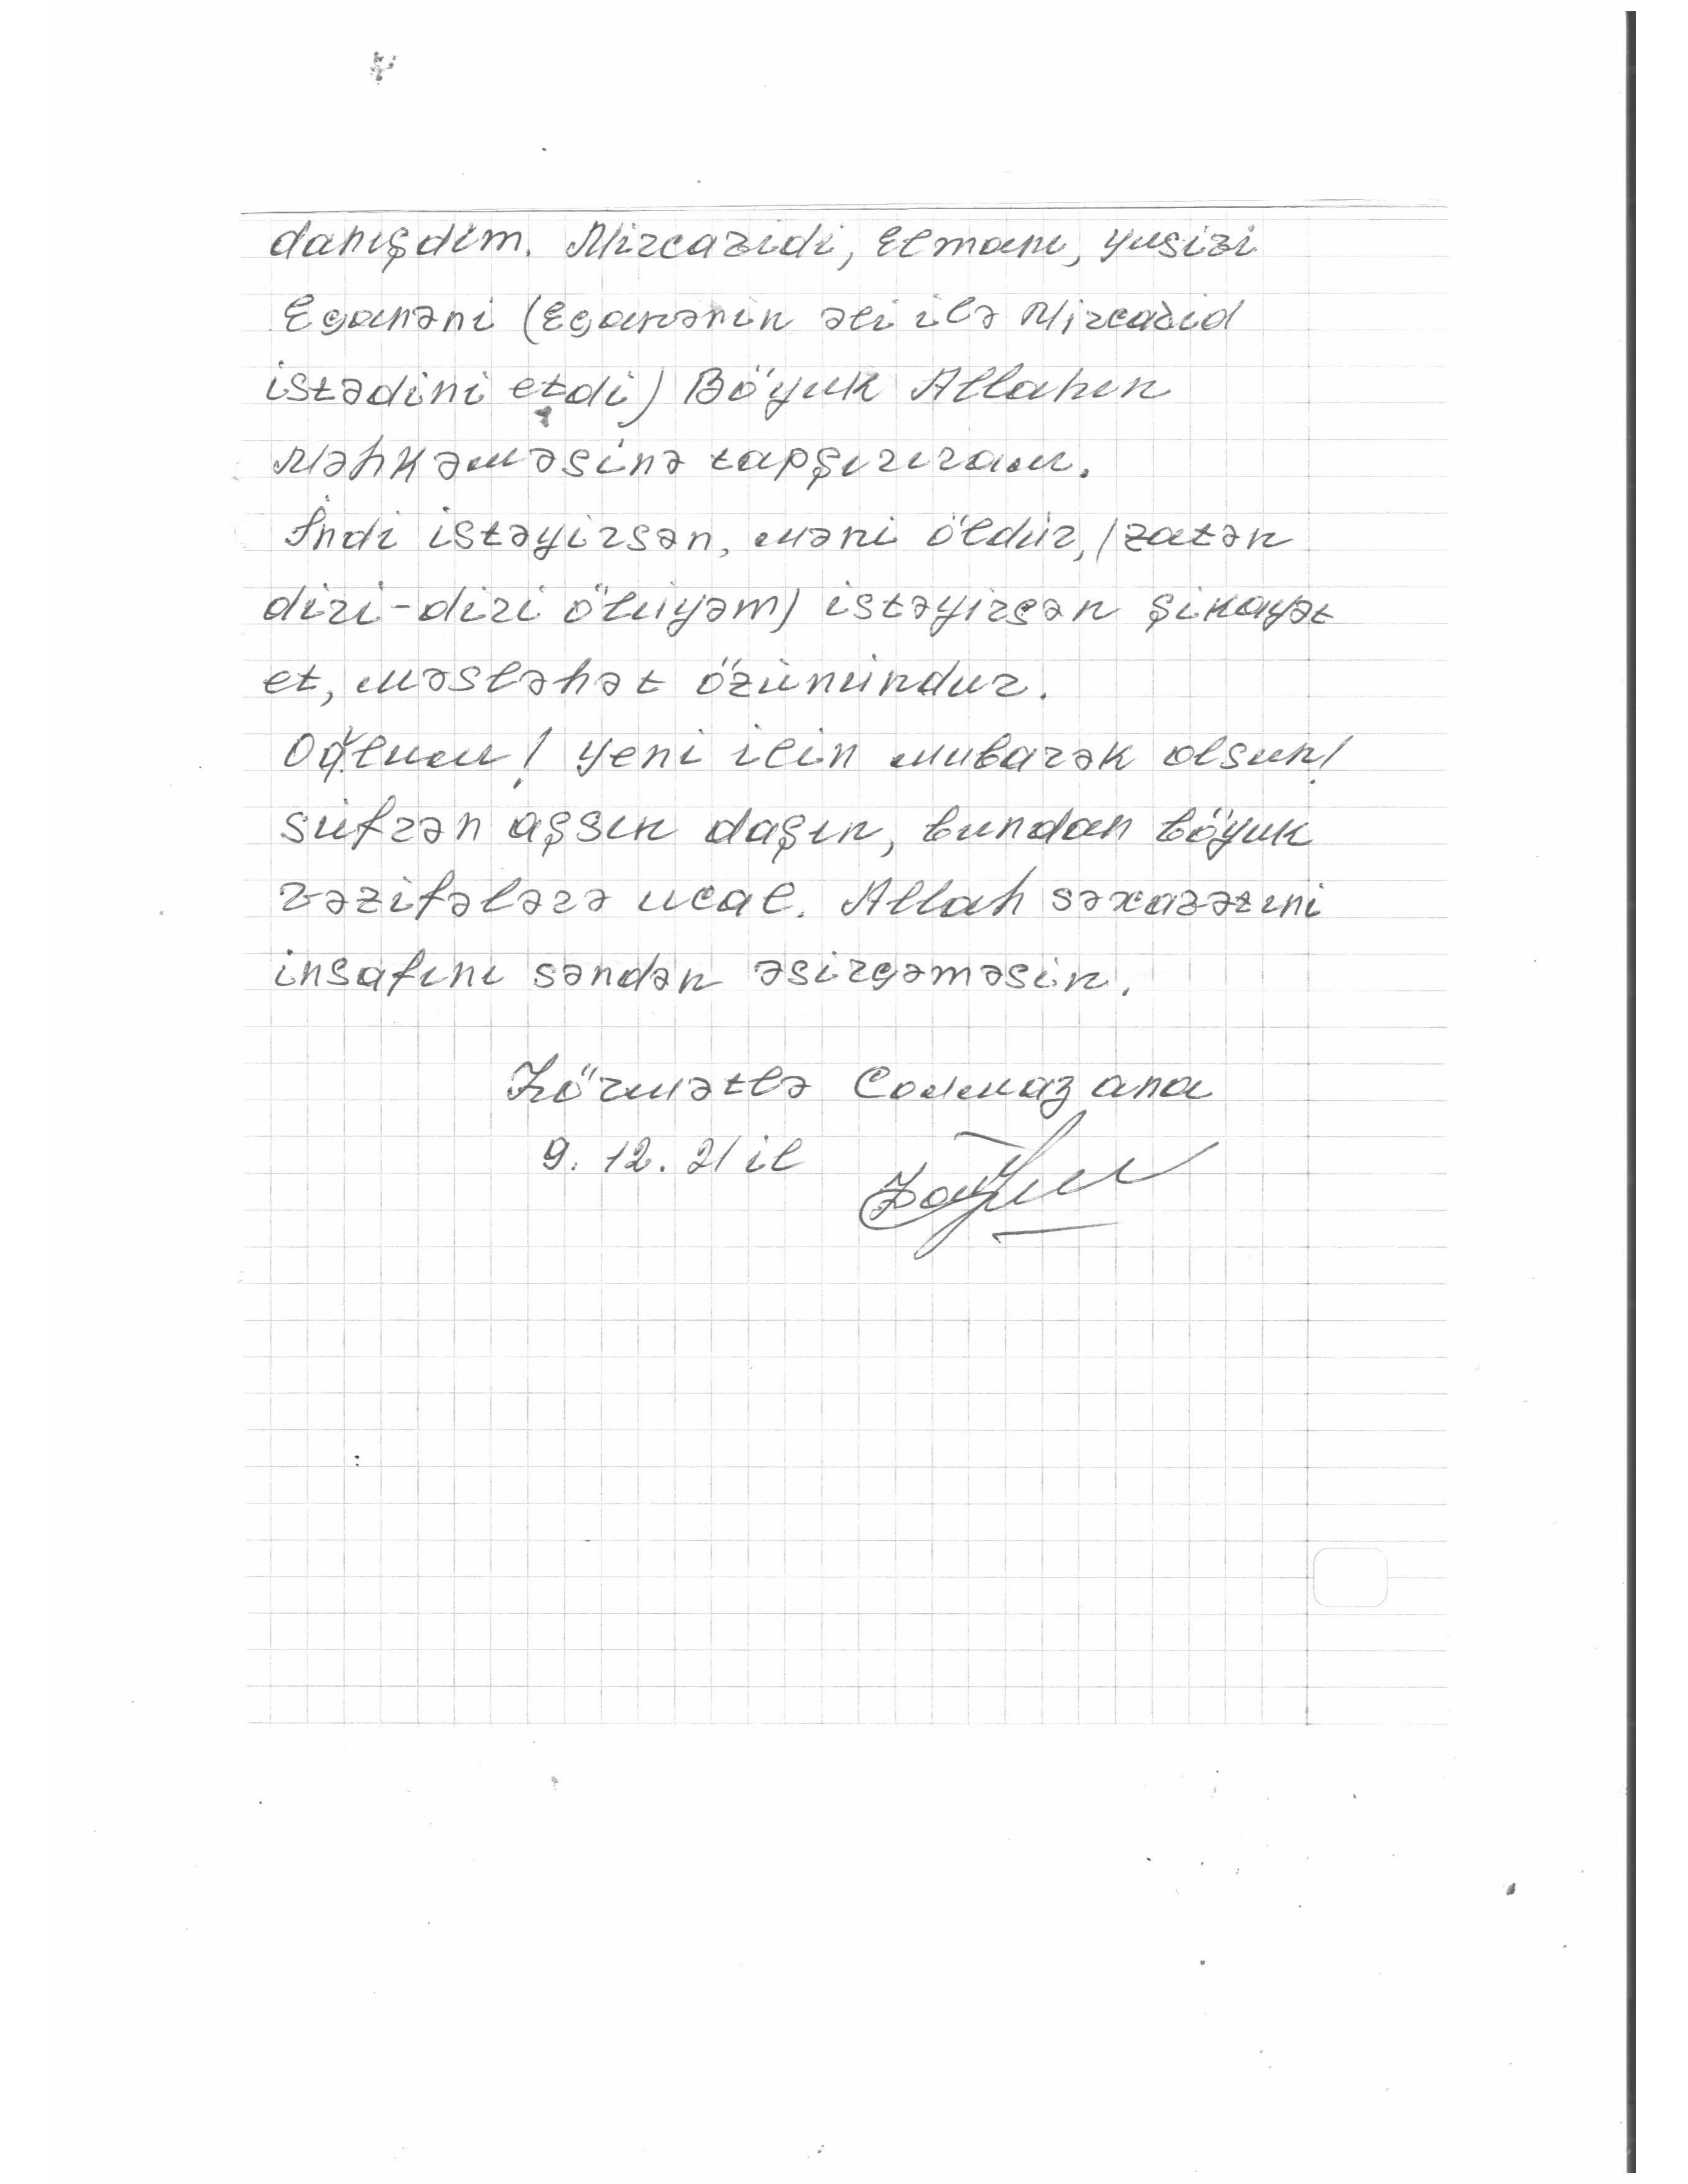 danışdım. Mircavidi, Elmanı, Yusifi
Eganəni (Eganənin əli ilə Mircavid
istədini etdi) Böyuk Allahın
Məhkəməsinə tapşırıram.
İndi istəyirsən, məni öldür, (zatən
diri-diri ölüyəm) istəyirsən şikayət
et, məsləhət özünündur.
Oğlum! Yeni ilin mubarək olsun!
süfrən aşsın daşın, bundan böyuk
vəzifələrə ucal. Allah səxavətini
insafını səndən əsirgəməsin.
Hörmətlə Almaz ana
9. 12. 21 il